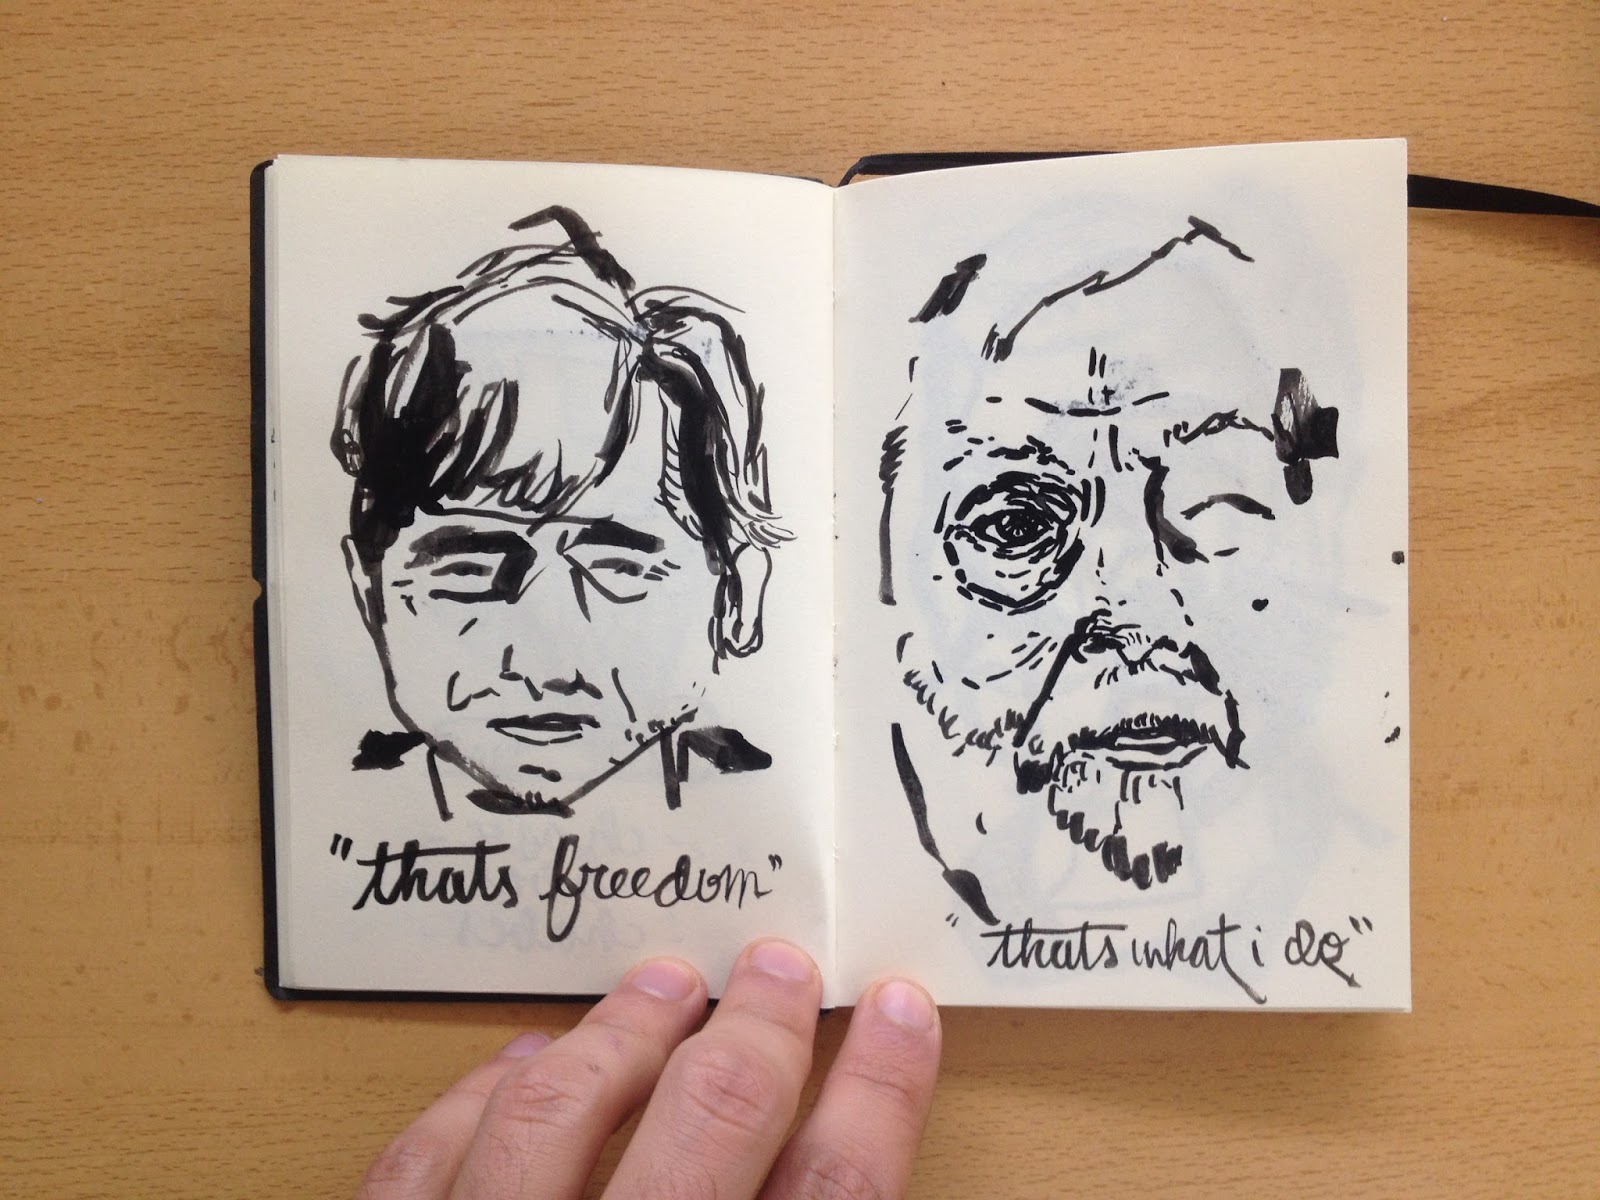 "thats freedom"
"thats what i do"